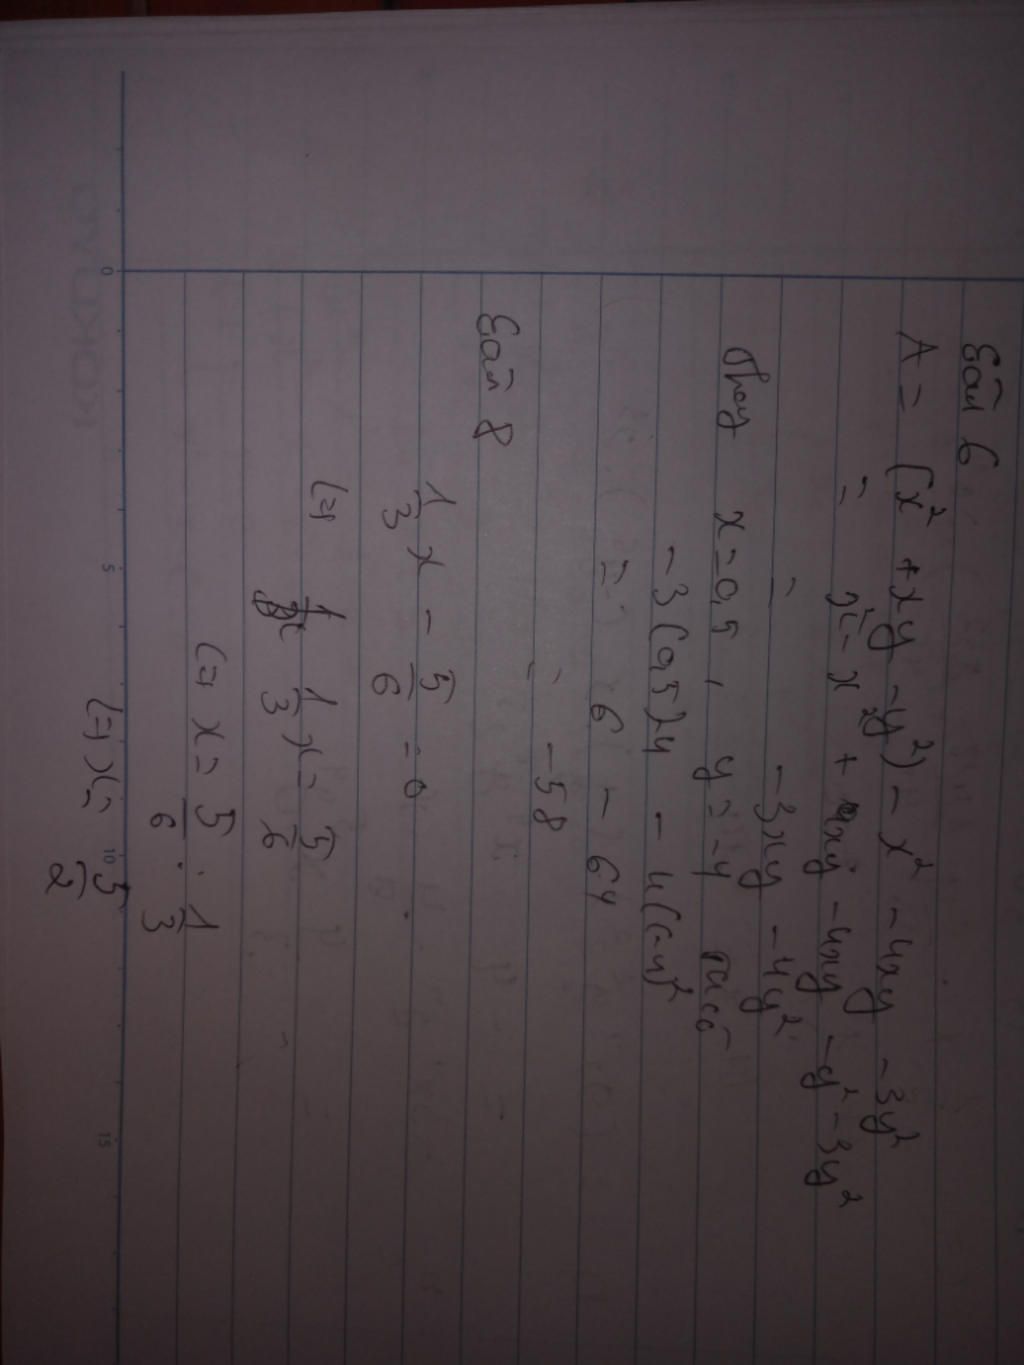 Bài 6
A = (x² + xy - y²) - x² - 4xy - 3y²
= x² - x² + xy - 4xy - y² - 3y²
= -3xy - 4y²
Thay x = 0,5 , y = -4 ta có
-3(0,5)4 - 4(-4)²
= 6 - 64
= -58
Bài 8
1/3 x - 5/6 = 0
(=) 1/3 x = 5/6
(=) x = 5/6 : 1/3
(=) x = 5/2
0 5 10 15
KOKUYO